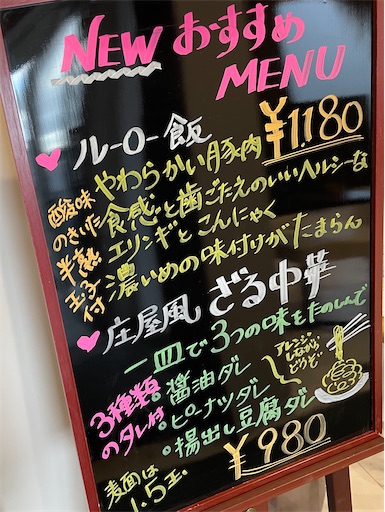 NEW おすすめ
MENU
ルーロー飯
¥1,180
酸味
のきいた
半熟
玉子
付
やわらかい豚肉
食感と歯ごたえのいいヘルシーな
エリンギとこんにゃく
濃いめの味付けがたまらん
庄屋風 ざる中華
一皿で3つの味をたのしんで
3種類
のタレ付
・醤油ダレ
・ピーナツダレ
・揚出し豆腐ダレ
アレンジ
しながら
どうぞ
麦面は
1.5玉
¥980